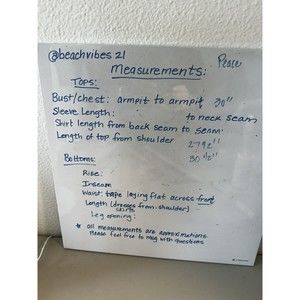 @beachvibes21
Peace
Measurements:
Tops:
Bust/chest: armpit to armpit 30"
Sleeve Length: to neck seam
Shirt length from back seam to seam:
Length of top from shoulder
30 1/2"
Bottoms:
Rise:
Inseam
Waist: tape laying flat across front
Length (dresses from shoulder)
skirts
Leg opening:
* all measurements are approximations
Please feel free to msg with questions